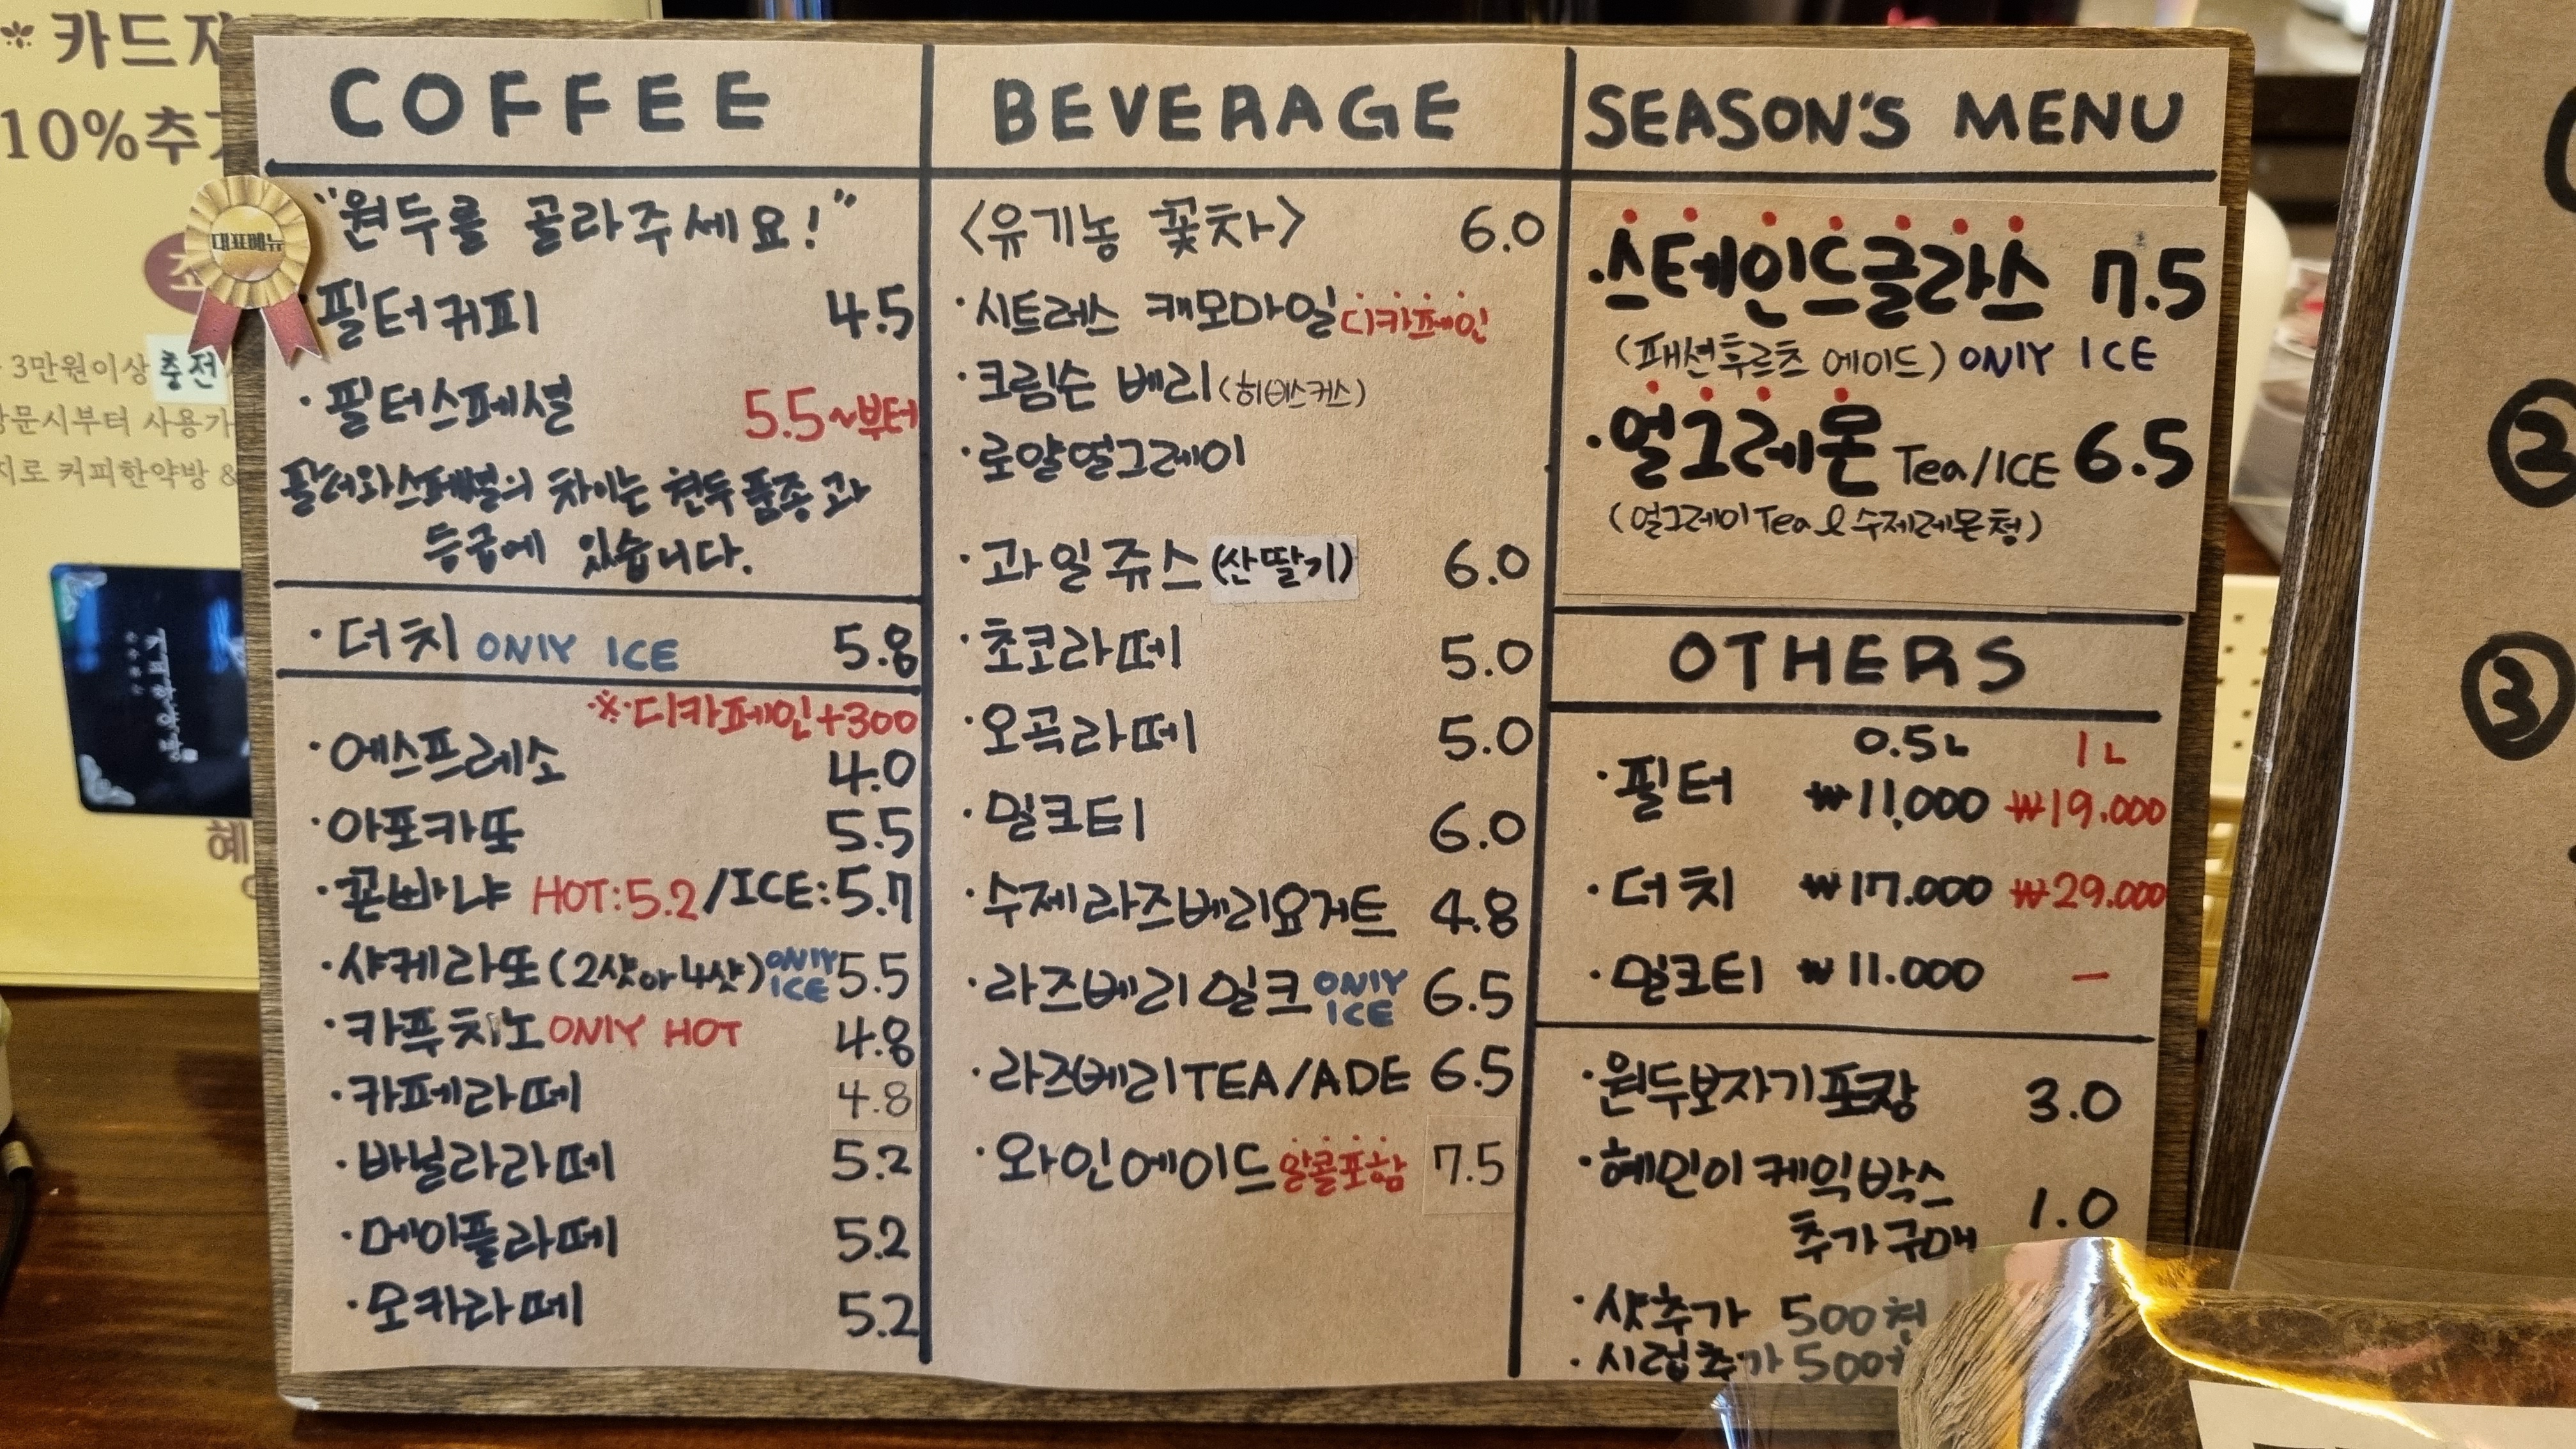 카드
10%추
3만원이상 충전
문시부터 사용가
로 커피한약방 &
혜
대표메뉴
COFFEE
"원두를 골라주세요!"
필터커피 4.5
·필터스페셜 5.5~부터
필터와스페셜의 차이는 원두품종과
등급에 있습니다.
·더치 ONLY ICE 5.8
※·디카페인+300
·에스프레소 4.0
·아포카또 5.5
·꼰빠냐 HOT:5.2/ICE:5.7
·샤케라또(2샷or4샷)ONLY ICE 5.5
·카푸치노 ONLY HOT 4.8
·카페라떼 4.8
·바닐라라떼 5.2
·메이플라떼 5.2
·모카라떼 5.2
BEVERAGE
<유기농 꽃차> 6.0
·시트러스 캐모마일 디카페인
·크림슨 베리(히비스커스)
·로얄얼그레이
·과일쥬스(산딸기) 6.0
·초코라떼 5.0
·오곡라떼 5.0
·밀크티 6.0
·수제라즈베리요거트 4.8
·라즈베리밀크 ONLY ICE 6.5
·라즈베리TEA/ADE 6.5
·와인에이드 알콜포함 7.5
SEASON'S MENU
·스테인드글라스 7.5
(패션후르츠 에이드) ONLY ICE
·얼그레몬 Tea/ICE 6.5
(얼그레이Tea & 수제레몬청)
OTHERS
0.5L 1L
·필터 ₩11,000 ₩19.000
·더치 ₩17.000 ₩29.000
·밀크티 ₩11.000 -
·원두보자기포장 3.0
·혜민이케익박스
추가구매 1.0
·샷추가 500원
·시럽추가 500
②
③